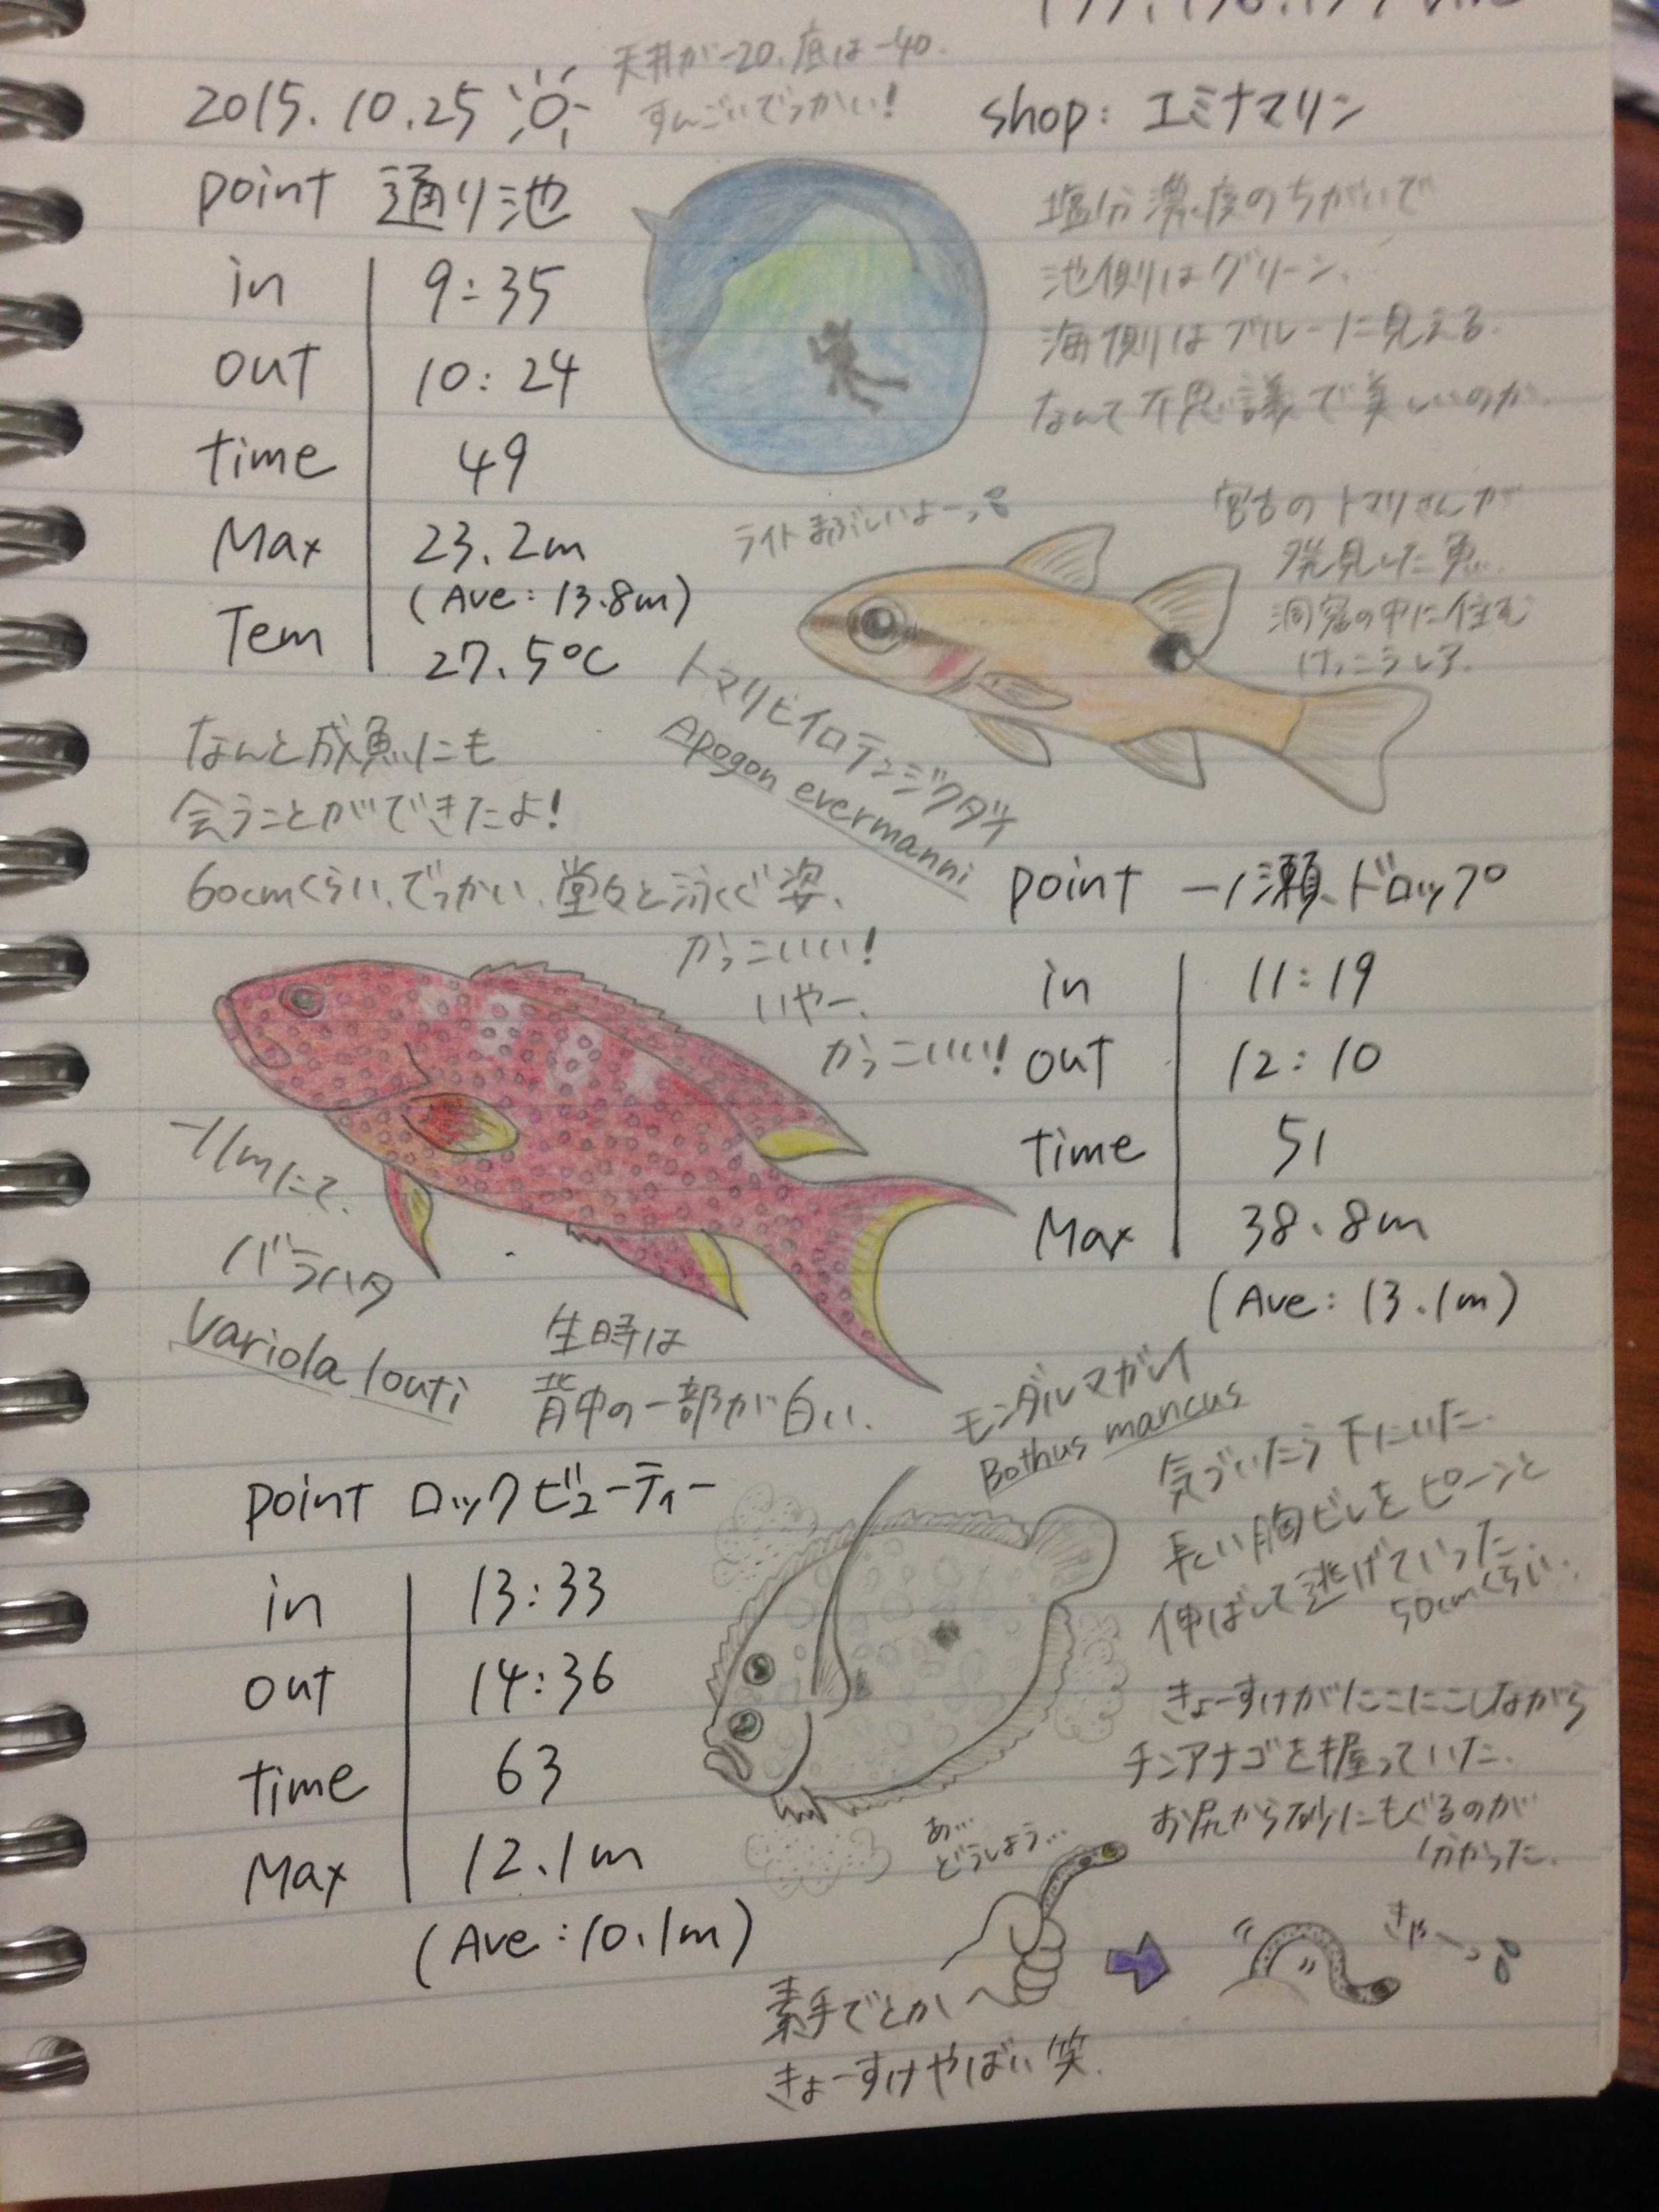 2015.10.25
天井が-20、底は-40.
すんごいでっかい!
shop: エミナマリン
point 通り池
in 9:35
out 10:24
time 49
Max 23.2m
(Ave: 13.8m)
Tem 27.5℃
塩分濃度のちがいで
池側はグリーン、
海側はブルーに見える.
なんて不思議で美しいのか.
ライトまぶしいよーっ
宮古のトマリさんが
発見した魚.
洞窟の中に住む
けっこうレア.
トマリヒイロテンジクダイ
Apogon evermanni
なんと成魚にも
会うことができたよ!
60cmくらい、でっかい、堂々と泳ぐ姿、
かっこいいい!
いやー、
かっこいいい!
-11mにて、
バラハタ
Variola louti
生時は
背中の一部が白い.
point 一ノ瀬ドロップ
in 11:19
out 12:10
time 51
Max 38.8m
(Ave: 13.1m)
モンダルマガレイ
Bothus mancus
気づいたら下にいた.
長い胸ビレをピーンと
伸ばして逃げていった.
50cmくらい.
point ロックビューティー
in 13:33
out 14:36
time 63
Max 12.1m
(Ave: 10.1m)
きょーすけがにこにこしながら
チンアナゴを握っていた.
お尻から砂にもぐるのが
分かった.
あ…
どうしよう…
きゃーっ
素手でとか
きょーすけやばい笑.